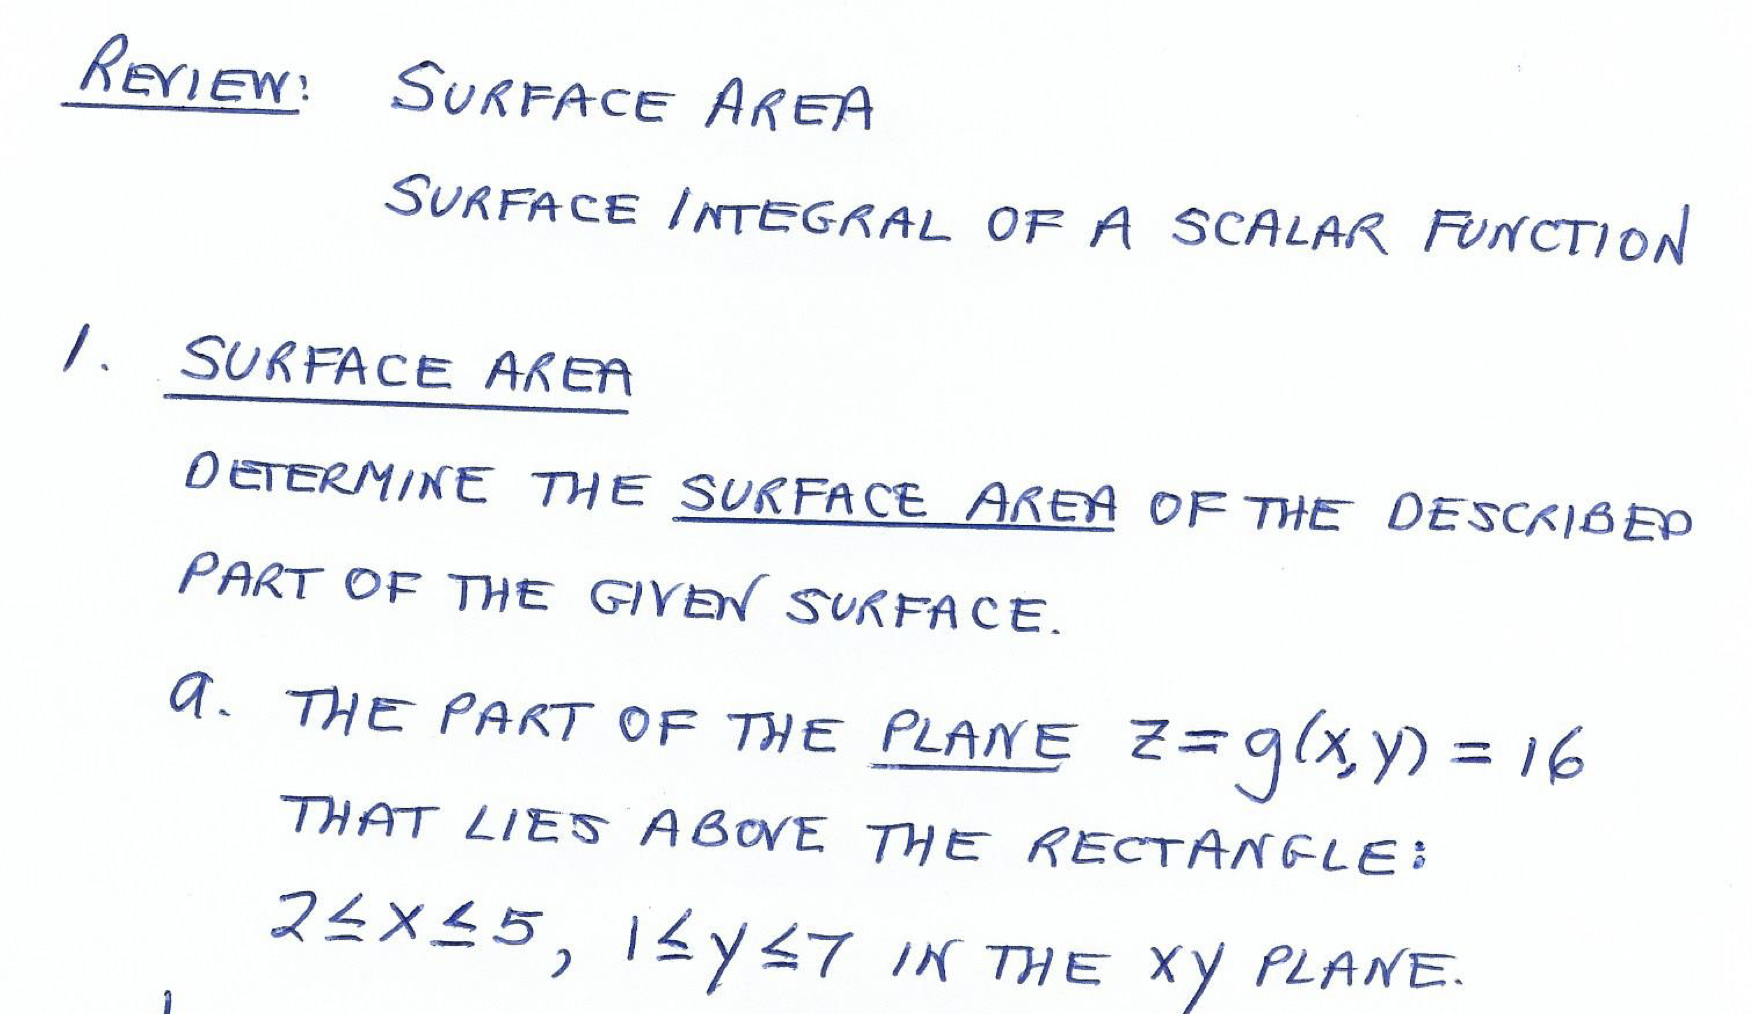 REVIEW: SURFACE AREA
SURFACE INTEGRAL OF A SCALAR FUNCTION
1. SURFACE AREA
DETERMINE THE SURFACE AREA OF THE DESCRIBED
PART OF THE GIVEN SURFACE.
a. THE PART OF THE PLANE z=g(x,y) = 16
THAT LIES ABOVE THE RECTANGLE:
2≤x≤5, 1≤y≤7 IN THE xy PLANE.